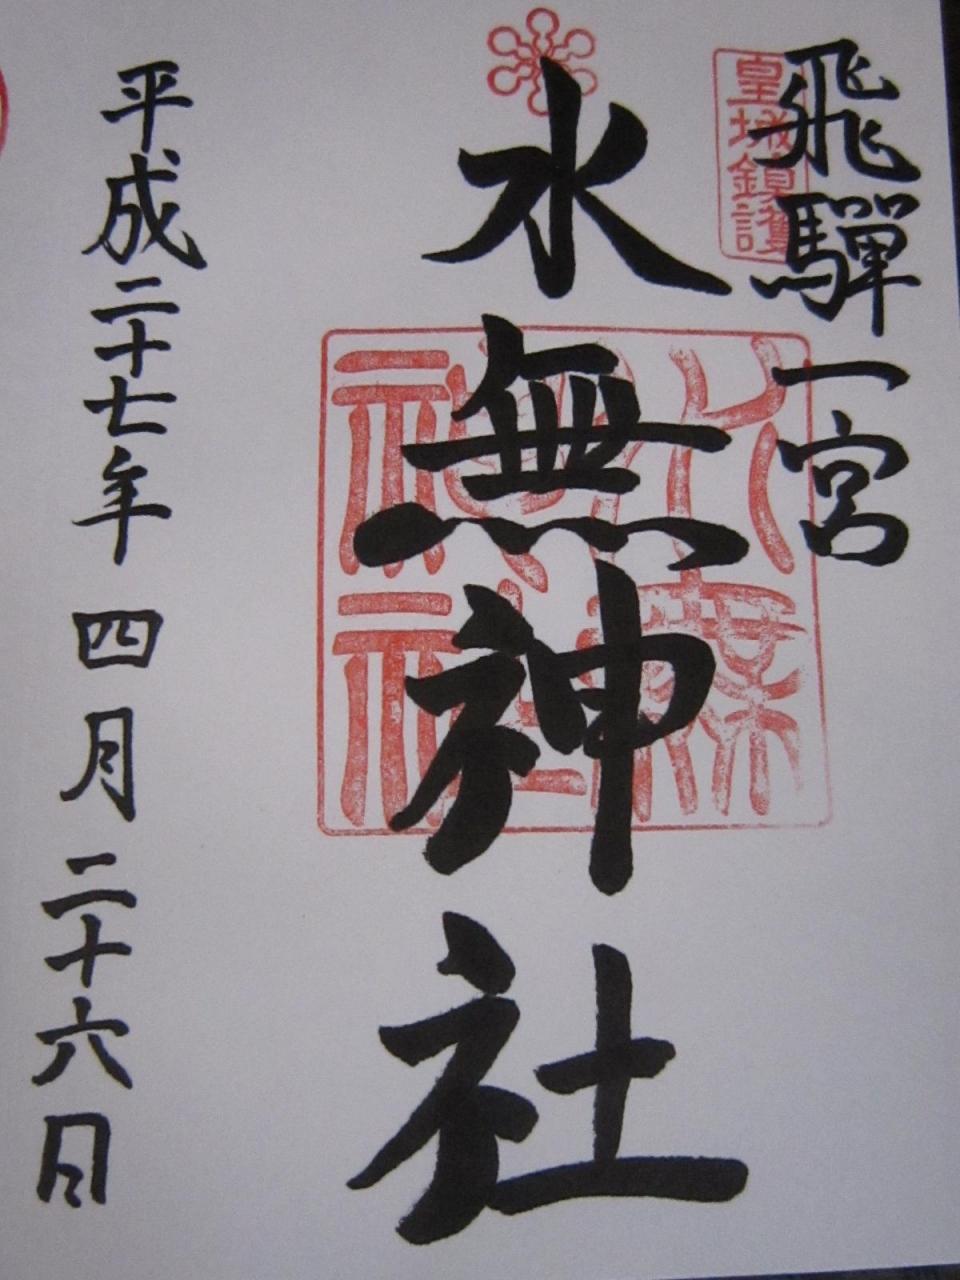 飛騨一宮
皇城鎮護
水無神社
水無神社
平成二十七年 四月 二十六日